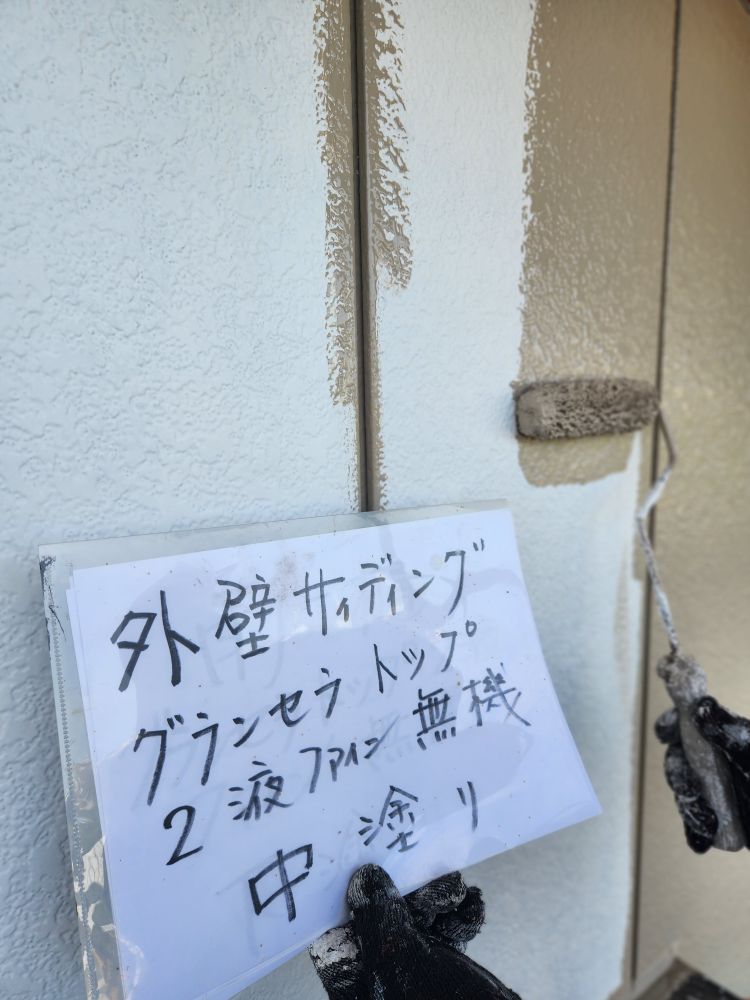 外壁サイディング
グランセラトップ
2液ファイン無機
中塗り